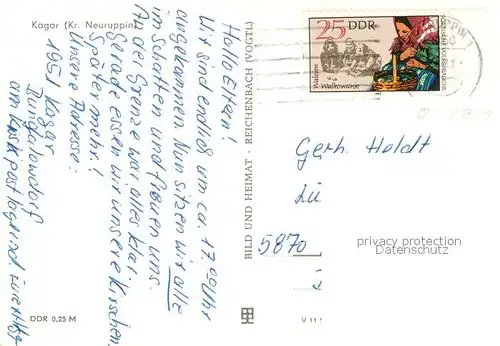 Kagar (Kr. Neuruppin)
Hallo Eltern!
Wir sind endlich um ca. 17.00 Uhr
angekommen. Nun sitzen wir alle
im Schatten und freuen uns.
An der Grenze war alles klar.
Gerade essen wir unsere Kirschen.
Später mehr!
Unsere Adresse:
1951 Kagar
Bungalowdorf
am
DDR 0,25 M
BILD UND HEIMAT · REICHENBACH (VOGTL)
25 DDR
Walkowanje
PPIN 1
Gerh. Holdt
5870
privacy protection
Datenschutz